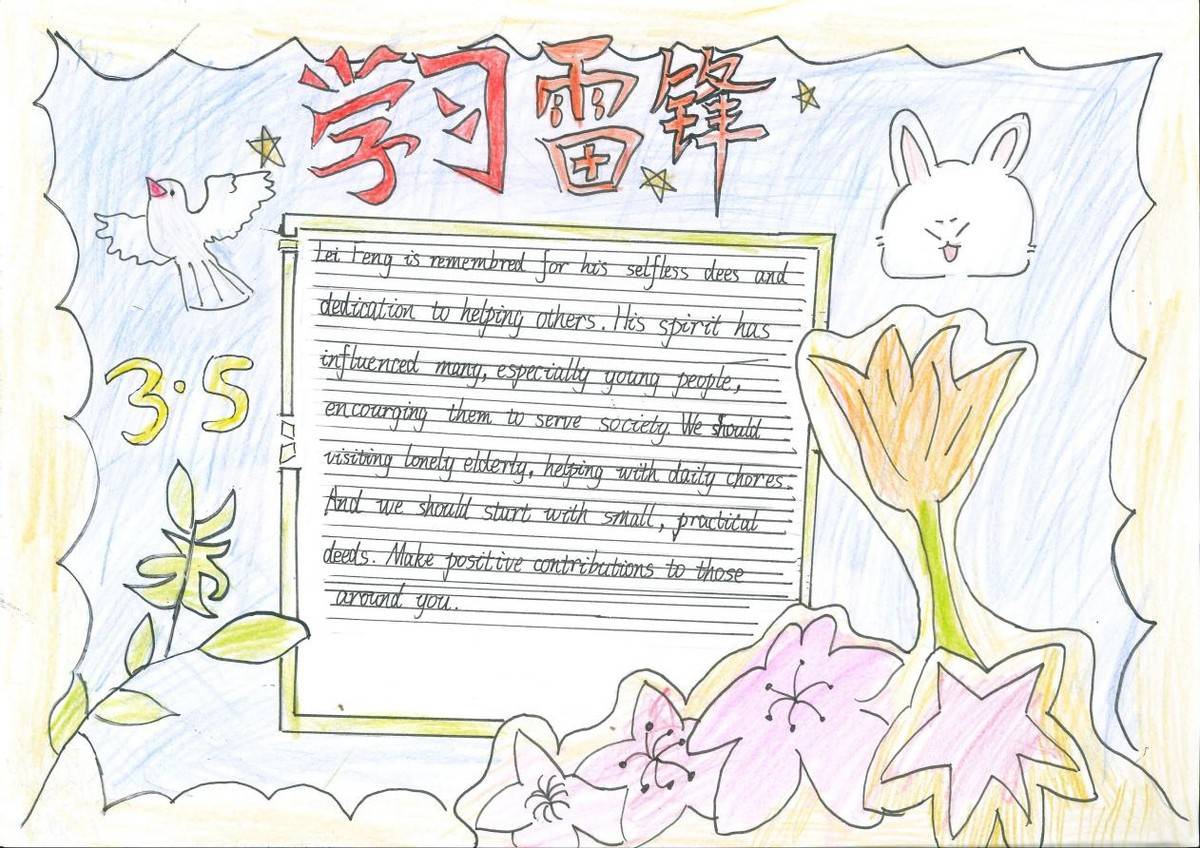 学习雷锋
3.5
Lei Feng is remembred for his selfless dees and
dedication to helping others. His spirit has
influenced many, especially young people,
encourging them to serve society. We should
visiting lonely elderly, helping with daily chores.
And we should start with small, practical
deeds. Make positive contributions to those
around you.